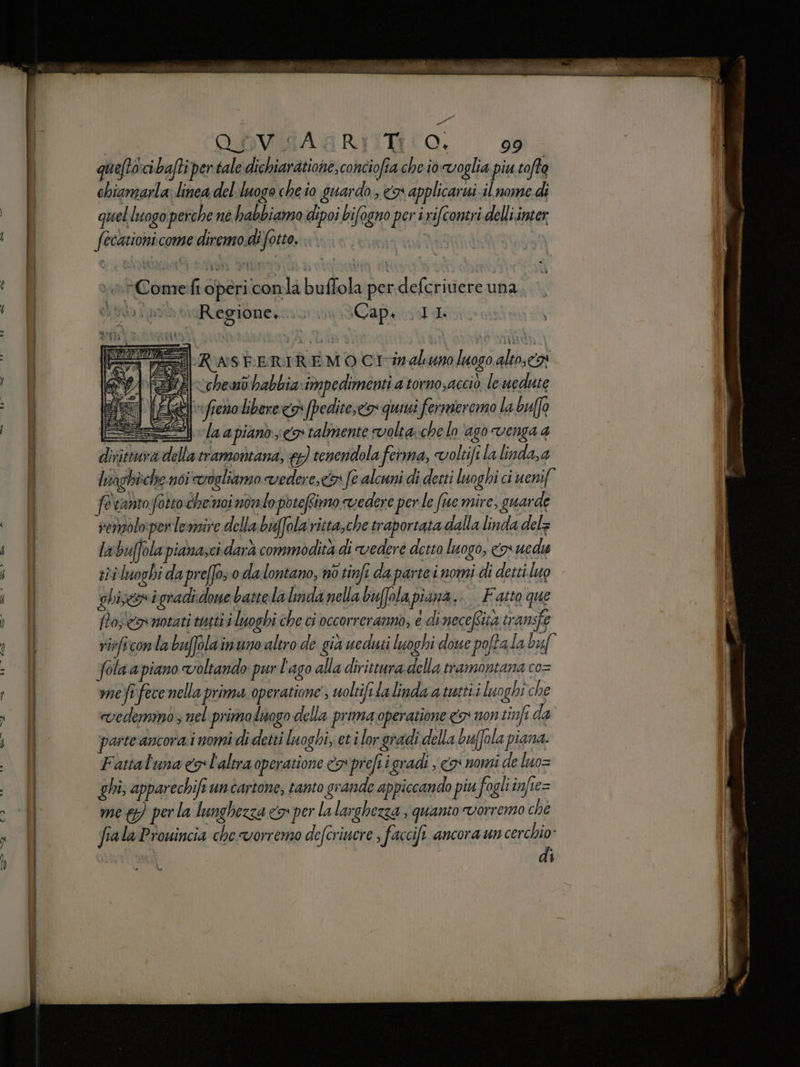 QVARTO. 99
queſto ci baſti per tale dichiaratione, concioſia che io voglia piu toſto
chiamarla linea del luogo che io guardo, & applicarui il nome di
quel luogo perche ne habbiamo dipoi biſogno per i riſcontri delli inter
ſecationi come diremo di ſotto.
Come ſi operi con la buſſola per deſcriuere una
Regione. Cap. II.
RASFERIREMOCI in alcuno luogo alto, &
che nõ habbia impedimenti a torno, acciò le uedute
ſieno libere & ſpedite, & quiui fermeremo la buſſo
la a piano, & talmente volta che lo ago venga a
dirittura della tramontana, & tenendola ferma, voltiſi la linda, a
luoghi che noi vogliamo vedere, & ſe alcuni di detti luoghi ci ueniſ
ſe tanto ſotto che noi non lo poteſsimo vedere per le ſue mire, guarde
remolo per le mire della buſſola ritta, che traportata dalla linda del=
la buſſola piana, ci darà commodità di vedere detto luogo, & uedu
ti i luoghi da preſſo, o da lontano, nõ tinſi da parte i nomi di detti luo
ghi, & i gradi doue batte la linda nella buſſola piana. Fatto que
ſto, & notati tutti i luoghi che ci occorreranno, è di neceſsità transfe
rirſi con la buſſola in uno altro de già ueduti luoghi doue poſta la buſ
ſola a piano voltando pur l'ago alla dirittura della tramontana co=
me ſi fece nella prima operatione, uoltiſi la linda a tutti i luoghi che
vedemmo, nel primo luogo della prima operatione & non tinſi da
parte ancora i nomi di detti luoghi, et i lor gradi della buſſola piana.
Fatta l'una & l'altra operatione & preſi i gradi, & nomi de luo=
ghi, apparechiſi un cartone, tanto grande appiccando piu fogli inſie=
me & per la lunghezza & per la larghezza, quanto vorremo che
ſia la Prouincia che vorremo deſcriuere, facciſi ancora un cerchio
di